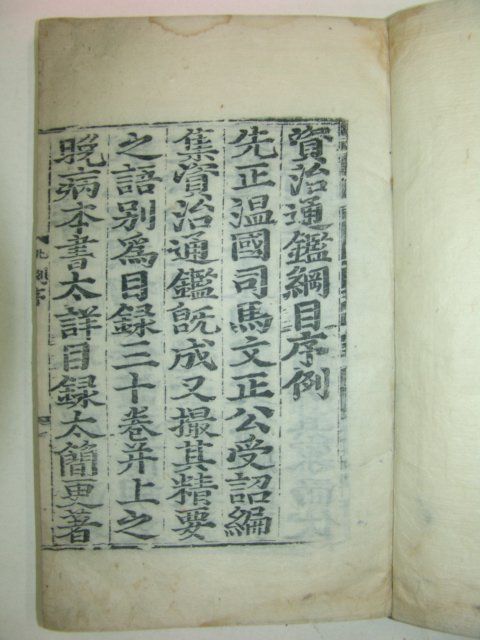 資治通鑑綱目序例
先正溫國司馬文正公受詔編
集資治通鑑旣成又撮其精要
之語别爲目録三十卷并上之
晚病本書太詳目録太簡更著